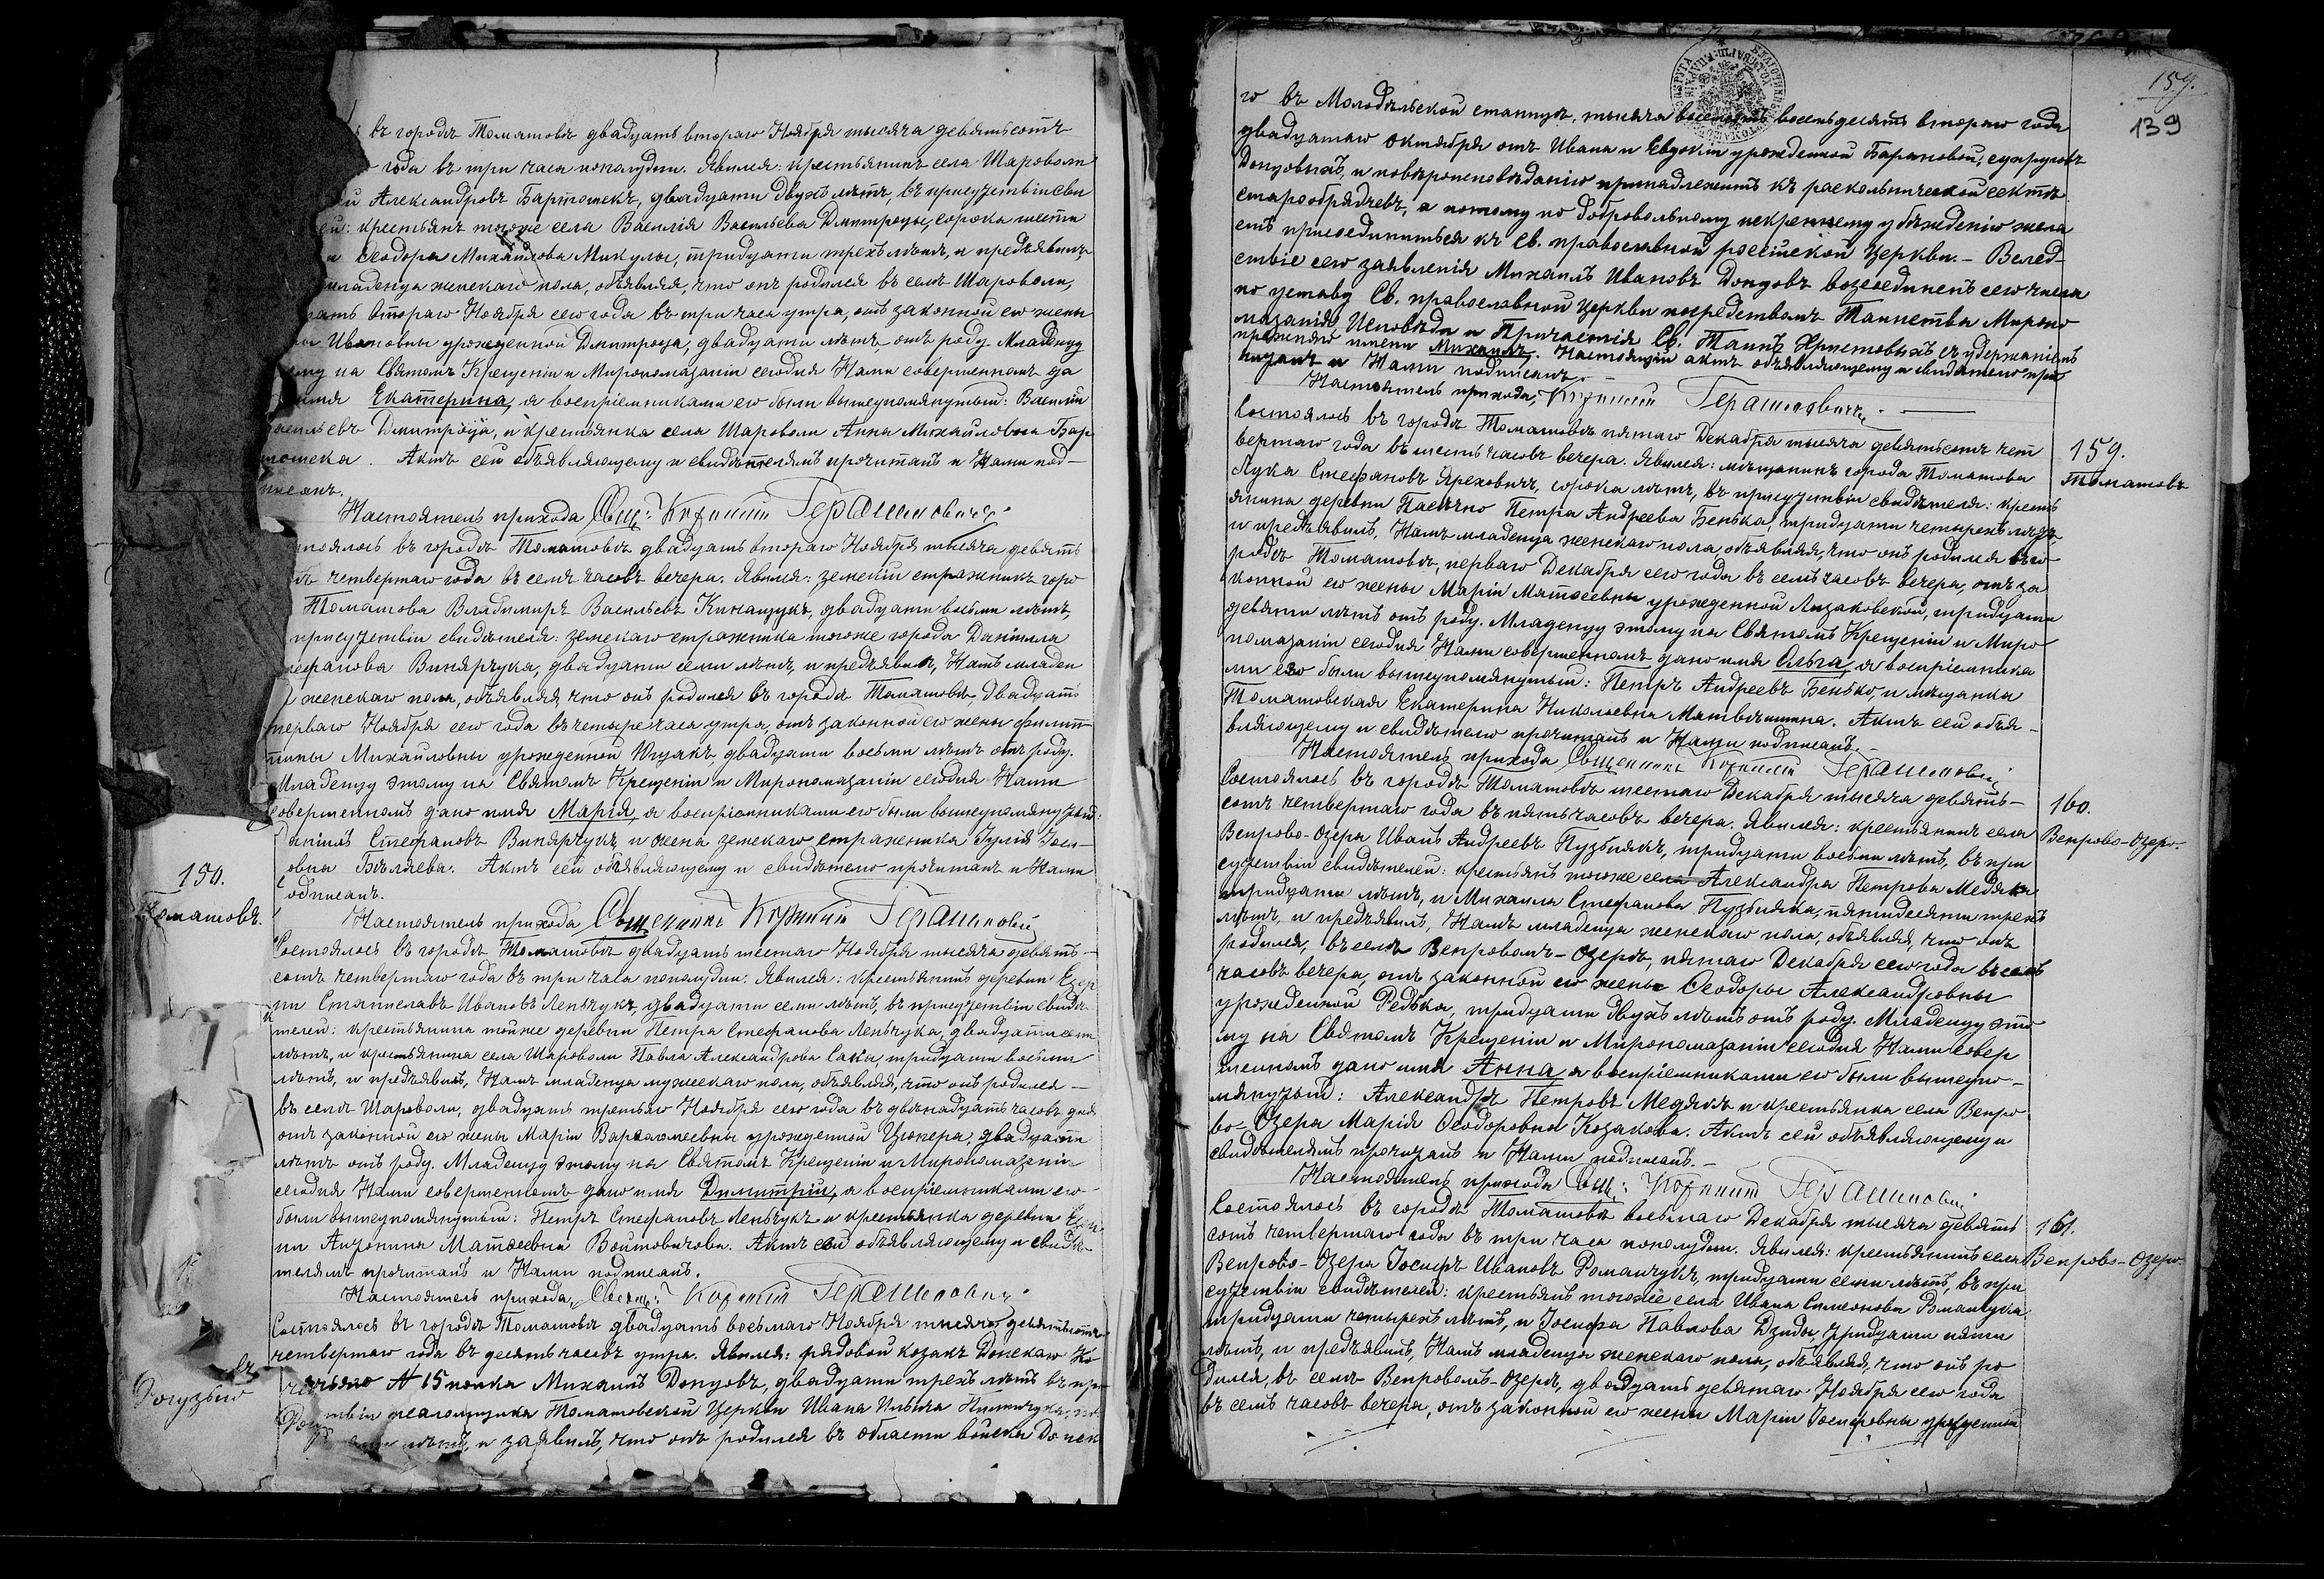 въ городѣ Томашовѣ двадцать втораго Ноября тысяча девятьсотъ
года въ три часа пополудни. Явился: крестьянинъ села Шароволи
Александровъ Бартошекъ, двадцати двухъ лѣтъ, въ присутствіи сви
крестьянъ тогоже села Василія Васильева Дмитроцы, сорока шести
и Ѳеодора Михайлова Микулы, тридцати трехъ лѣтъ, и предъявилъ
младенца женскаго пола, объявляя, что онъ родился въ селѣ Шароволи,
втораго Ноября сего года въ три часа утра, отъ законной его жены
Ивановны урожденной Дмитроца, двадцати лѣтъ, отъ роду. Младенцу
на Святомъ Крещеніи и Миропомазаніи сегодня Нами совершенномъ да
имя Екатерина, а воспріемниками его были вышеупомянутый: Василій
Дмитроца, и крестьянка села Шароволи Анна Михайловна Бар
тошека. Актъ сей объявляющему и свидѣтелямъ прочитанъ и Нами под-
писанъ.
Настоятель прихода Свящ: Корнилій Герашиновичъ
въ городѣ Томашовѣ двадцать втораго Ноября тысяча девять
четвертаго года въ семь часовъ вечера. Явился: земскій стражникъ горо
Томашова Владимиръ Васильевъ Кинащукъ, двадцати восьми лѣтъ,
присутствіи свидѣтеля: земскаго стражника тогоже города Даніила
Винярчука, двадцати семи лѣтъ, и предъявилъ, Намъ младен
женскаго пола, объявляя, что онъ родился въ городѣ Томашовѣ, двадцать
перваго Ноября сего года въ четыре часа утра, отъ законной его жены Филип
пины Михайловны урожденной двадцати восьми лѣтъ отъ роду.
Младенцу этому на Святомъ Крещеніи и Миропомазаніи сегодня Нами
совершенномъ дано имя Марія, а воспріемниками его были вышеупомянутый:
Даніилъ Стефановъ Винярчукъ, и жена земскаго стражника Іулія
Бѣляева. Актъ сей объявляющему и свидѣтелю прочитанъ и Нами
подписанъ.
Настоятель прихода Священникъ Корнилій Герашиновичъ
150.
Томашовъ.
Состоялось въ городѣ Томашовѣ двадцать шестаго Ноября тысяча девять-
сотъ четвертаго года въ три часа пополудни. Явился: крестьянинъ деревни Езер
ни Станиславъ Ивановъ Леньчукъ, двадцати семи лѣтъ, въ присутствіи свидѣ
телей: крестьянина тойже деревни Петра Стефанова Леньчука, двадцати семи
лѣтъ, и крестьянина села Шароволи Павла Александрова Сака, тридцати восьми
лѣтъ, и предъявилъ, Намъ младенца мужескаго пола, объявляя, что онъ родился-
въ селѣ Шароволи, двадцать третьяго Ноября сего года въ двѣнадцать часовъ дня
отъ законной его жены Маріи Варѳоломеевны урожденной Цюпера, двадцати
лѣтъ отъ роду. Младенцу этому на Святомъ Крещеніи и Миропомазаніи
сегодня Нами совершенномъ дано имя Димитрій, а воспріемниками его
были вышеупомянутый: Петръ Стефановъ Леньчукъ и крестьянка деревни Езер
ни Антонина Матѳеевна Войтовичова. Актъ сей объявляющему и свидѣ-
телямъ прочитанъ и Нами подписанъ.
Настоятель прихода, Свящ: Корнилій Герашиновичъ
Состоялось въ городѣ Томашовѣ двадцать восьмаго Ноября тысяча девятьсотъ
четвертаго года въ десять часовъ утра. Явился: рядовой козакъ Донскаго Ко-
зачьяго № 15 полка Михаилъ Донцовъ, двадцати трехъ лѣтъ въ при-
псаломщика Томашовской Церкви Ивана Ильича
лѣтъ, и заявилъ, что онъ родился въ области войска Донска
159.
139
го въ Молодѣльской станицѣ, тысяча восемьсотъ восемьдесятъ втораго года
двадцатаго октября отъ Ивана и Евдокіи урожденной Барановой, супруговъ
Донцовыхъ, и по вѣроисповѣданію принадлежитъ къ раскольнической сектѣ
старообрядцевъ, а потому по добровольному искреннему убѣжденію жела
етъ присоединиться къ Св. православной россійской Церкви.- Вслед-
ствіе сего заявленія Михаилъ Ивановъ Донцовъ возсоединенъ сего числа
по уставу Св. православной Церкви посредствомъ Таинства Миропо
мазанія, Исповѣди и Причастія Св. Таинъ Христовыхъ съ удержаніемъ
прежняго имени Михаилъ. Настоящій актъ объявляющему и свидѣтелю про
читанъ и Нами подписанъ.-
Настоятель прихода, Корнилій Герашиновичъ.
159.
Томашовъ
Состоялось въ городѣ Томашовѣ пятаго Декабря тысяча девятьсотъ чет
вертаго года въ шесть часовъ вечера. Явился: мѣщанинъ города Томашова
Лука Стефановъ Яреховичъ, сорока лѣтъ, въ присутствіи свидѣтеля: кресть
янина деревни Пасѣчно Петра Андреева Бенька, тридцати четырехъ лѣтъ,
и предъявилъ, Намъ младенца женскаго пола, объявляя, что онъ родился въ го-
родѣ Томашовѣ, перваго Декабря сего года въ семь часовъ вечера, отъ за
конной его жены Маріи Матѳеевны урожденной Лизаковской, тридцати
девяти лѣтъ отъ роду. Младенцу этому на Святомъ Крещеніи и Миро
помазаніи сегодня Нами совершенномъ дано имя Ольга, а воспріемника
ми его были вышеупомянутый: Петръ Андреевъ Бенько, и мѣщанка
Томашовская Екатерина Николаевна Матвѣишина. Актъ сей объя-
вляющему и свидѣтелю прочитанъ и Нами подписанъ.-
Настоятель прихода Священникъ Корнилій Герашиновичъ
160.
Вепрово-Озеро.
Состоялось въ городѣ Томашовѣ шестаго Декабря тысяча девять-
сотъ четвертаго года въ пять часовъ вечера. Явился: крестьянинъ села
Вепрово-Озера Иванъ Андреевъ Пузьнякъ, тридцати восьми лѣтъ, въ при
сутствіи свидѣтелей: крестьянъ тогоже села Александра Петрова Медяка
тридцати лѣтъ, и Михаила Стефанова Пузьняка, пятидесяти трехъ
лѣтъ, и предъявилъ, Намъ младенца женскаго пола, объявляя, что онъ
родился, въ селѣ Вепровомъ-Озерѣ, пятаго Декабря сего года въ семь
часовъ вечера, отъ законной его жены Ѳеодоры Александровны
урожденной Редька, тридцати двухъ лѣтъ отъ роду. Младенцу это
му на Святомъ Крещеніи и Миропомазаніи сегодня Нами совер
шенномъ дано имя Анна, а воспріемниками его были вышеупо-
мянутый: Александръ Петровъ Медякъ и крестьянка села Вепро
во-Озера Марія Ѳеодоровна Козакова. Актъ сей объявляющему и
свидѣтелямъ прочитанъ и Нами подписанъ.-
Настоятель прихода Свящ: Корнилій Герашиновичъ
161.
Вепрово-Озеро.
Состоялось въ городѣ Томашовѣ восьмаго Декабря тысяча девять
сотъ четвертаго года въ три часа пополудни. Явился: крестьянинъ села
Вепрово-Озера Іосифъ Ивановъ Романчукъ, тридцати семи лѣтъ, въ при
сутствіи свидѣтелей: крестьянъ тогоже села Ивана Симеонова Романчука
тридцати четырехъ лѣтъ, и Іосифа Павлова Дзиды, тридцати пяти
лѣтъ, и предъявилъ, Намъ младенца женскаго пола, объявляя, что онъ ро
дился, въ селѣ Вепровомъ-Озерѣ, двадцать девятаго Ноября сего года
въ семь часовъ вечера, отъ законной его жены Маріи Іосифовны урожденной